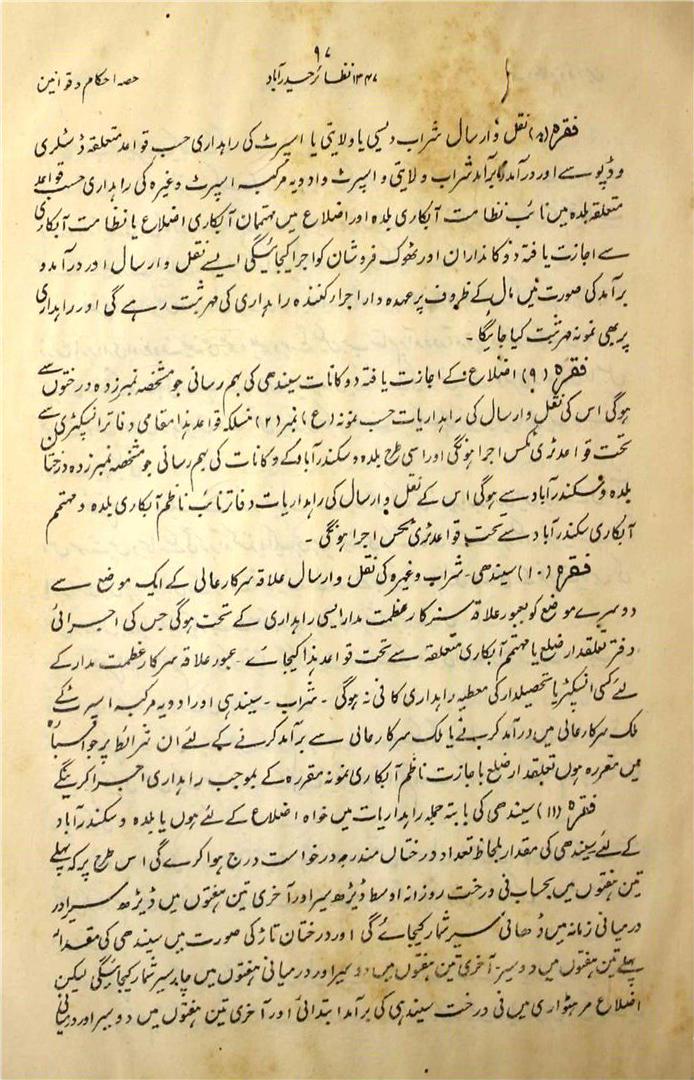 ۹۷
حصہ احکام و قوانین
۱۳۴۷ نظائر حیدرآباد
فقرہ (۸) نقل و ارسال شراب دیسی یا ولایتی یا اسپرٹ کی راہداری حسب قواعد متعلقہ ڈسٹلری
و ڈپو سے اور درآمد و برآمد شراب ولایتی و اسپرٹ و ادویہ مرکبہ اسپرٹ وغیرہ کی راہداری حسب قواعد
متعلقہ بلدہ میں نائب نظامت آبکاری بلدہ اور اضلاع میں مہتمان آبکاری اضلاع یا نظامت آبکاری
سے اجازت یافتہ دوکانداران اور تھوک فروشان کو اجرا کیجائیگی ایسے نقل و ارسال اور درآمد و
برآمد کی صورت میں مال کے ظروف پر عہدہ دار اجرا کنندہ راہداری کی مہر ثبت رہے گی اور راہداری
پر بھی نمونہ مہر ثبت کیا جائیگا ۔
فقرہ (۹) اضلاع کے اجازت یافتہ دوکانات سیندھی کی بہم رسانی جو مشخصہ نمبر زدہ درختوں سے
ہوگی اس کی نقل و ارسال کی راہداریات حسب نمونہ (ع) نمبر (۲) منسلکہ قواعد ہذا مقامی دفاتر انسپکٹری سے
تحت قواعد ٹری ٹکس اجرا ہونگی اور اسی طرح بلدہ و سکندرآباد کے دوکانات کی بہم رسانی جو مشخصہ نمبر زدہ درختان
بلدہ و سکندرآباد سے ہوگی اس کے نقل و ارسال کی راہداریات دفاتر نائب ناظم آبکاری بلدہ و مہتمم
آبکاری سکندرآباد سے تحت قواعد ٹری ٹکس اجرا ہونگی ۔
فقرہ (۱۰) سیندھی ۔ شراب وغیرہ کی نقل و ارسال علاقہ سرکار عالی کے ایک موضع سے
دوسرے موضع کو بعبور علاقہ سرکار عظمت مدار ایسی راہداری کے تحت ہوگی جس کی اجرائی
دفتر تعلقدار ضلع یا مہتمم آبکاری متعلقہ سے تحت قواعد ہذا کیجائے ۔ عبور علاقہ سرکار عظمت مدار کے
لئے کسی انسپکٹر یا تحصیلدار کی معطیہ راہداری کافی نہ ہوگی ۔ شراب ۔ سیندھی اور ادویہ مرکبہ اسپرٹ کے
ملک سرکار عالی میں درآمد کرنے یا ملک سرکار عالی سے برآمد کرنے کے لئے ان شرائط پر جو
میں مقررہ ہوں تعلقدار ضلع باجازت ناظم آبکاری نمونہ مقررہ کے بموجب راہداری اجرا کرینگے
فقرہ (۱۱) سیندھی کی بابتہ جملہ راہداریات میں خواہ اضلاع کے لئے ہوں یا بلدہ و سکندرآباد
کے لئے سیندھی کی مقدار بلحاظ تعداد درختاں مندرجہ درخواست درج ہوا کرے گی اس طرح پر کہ پہلے
تین ہفتوں میں بحساب فی درخت روزانہ اوسط ڈیڑھ سیر اور آخری تین ہفتوں میں ڈیڑھ سیر اور
درمیانی زمانہ میں ڈھائی سیر شمار کیجائے گی اور درختان تاڑ کی صورت میں سیندھی کی مقدار
پہلے تین ہفتوں میں دو سیر ۔ آخری تین ہفتوں میں دو سیر اور درمیانی ہفتوں میں چار سیر شمار کیجائیگی لیکن
اضلاع مرہٹواری میں فی درخت سیندھی کی برآمد ابتدائی اور آخری تین ہفتوں میں دو سیر اور درمیانی